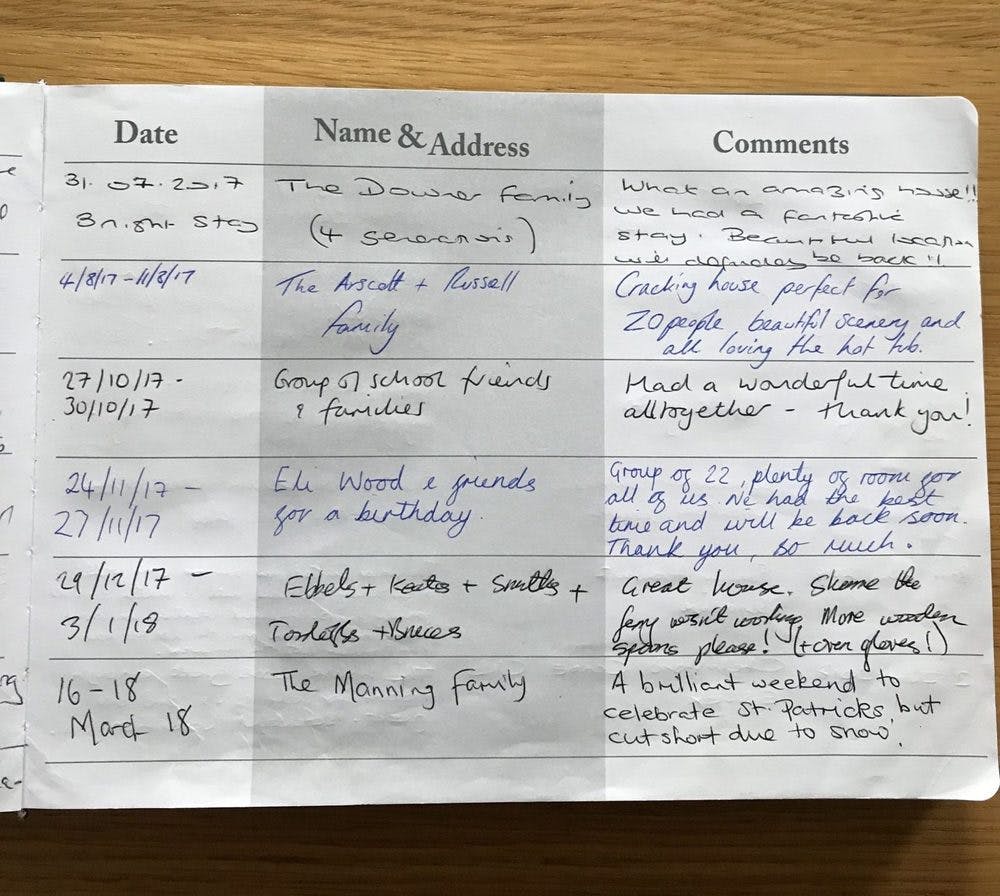 Date Name & Address Comments
31.07.2017 The Downer family What an amazing house!!
3 night stay (4 generations) we had a fantastic
stay. Beautiful location
will definitely be back!!
4/8/17-11/8/17 The Arscott + Russell Cracking house perfect for
family 20 people, beautiful scenery and
all loving the hot tub.
27/10/17 - Group of school friends Had a wonderful time
30/10/17 & families alltogether - thank you!
24/11/17 - Eli Wood & friends Group of 22, plenty of room for
27/11/17 for a birthday. all of us. We had the best
time and will be back soon.
Thank you, so much.
29/12/17 - Ebbels + + Smiths + Great house. Shame the
3/1/18 ferry wasn't working. More wooden
spoons please! (+ oven gloves!)
16-18 The Manning Family A brilliant weekend to
March 18 celebrate St. Patricks, but
cut short due to snow!